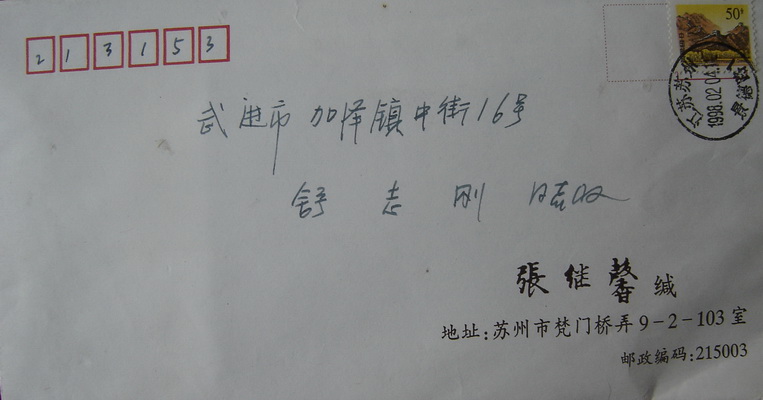 213153
50
武进市 加泽镇中街16号
江苏苏州
1998.02.04
舒 志 刚 收
張继馨 缄
地址:苏州市梵门桥弄9-2-103室
邮政编码:215003